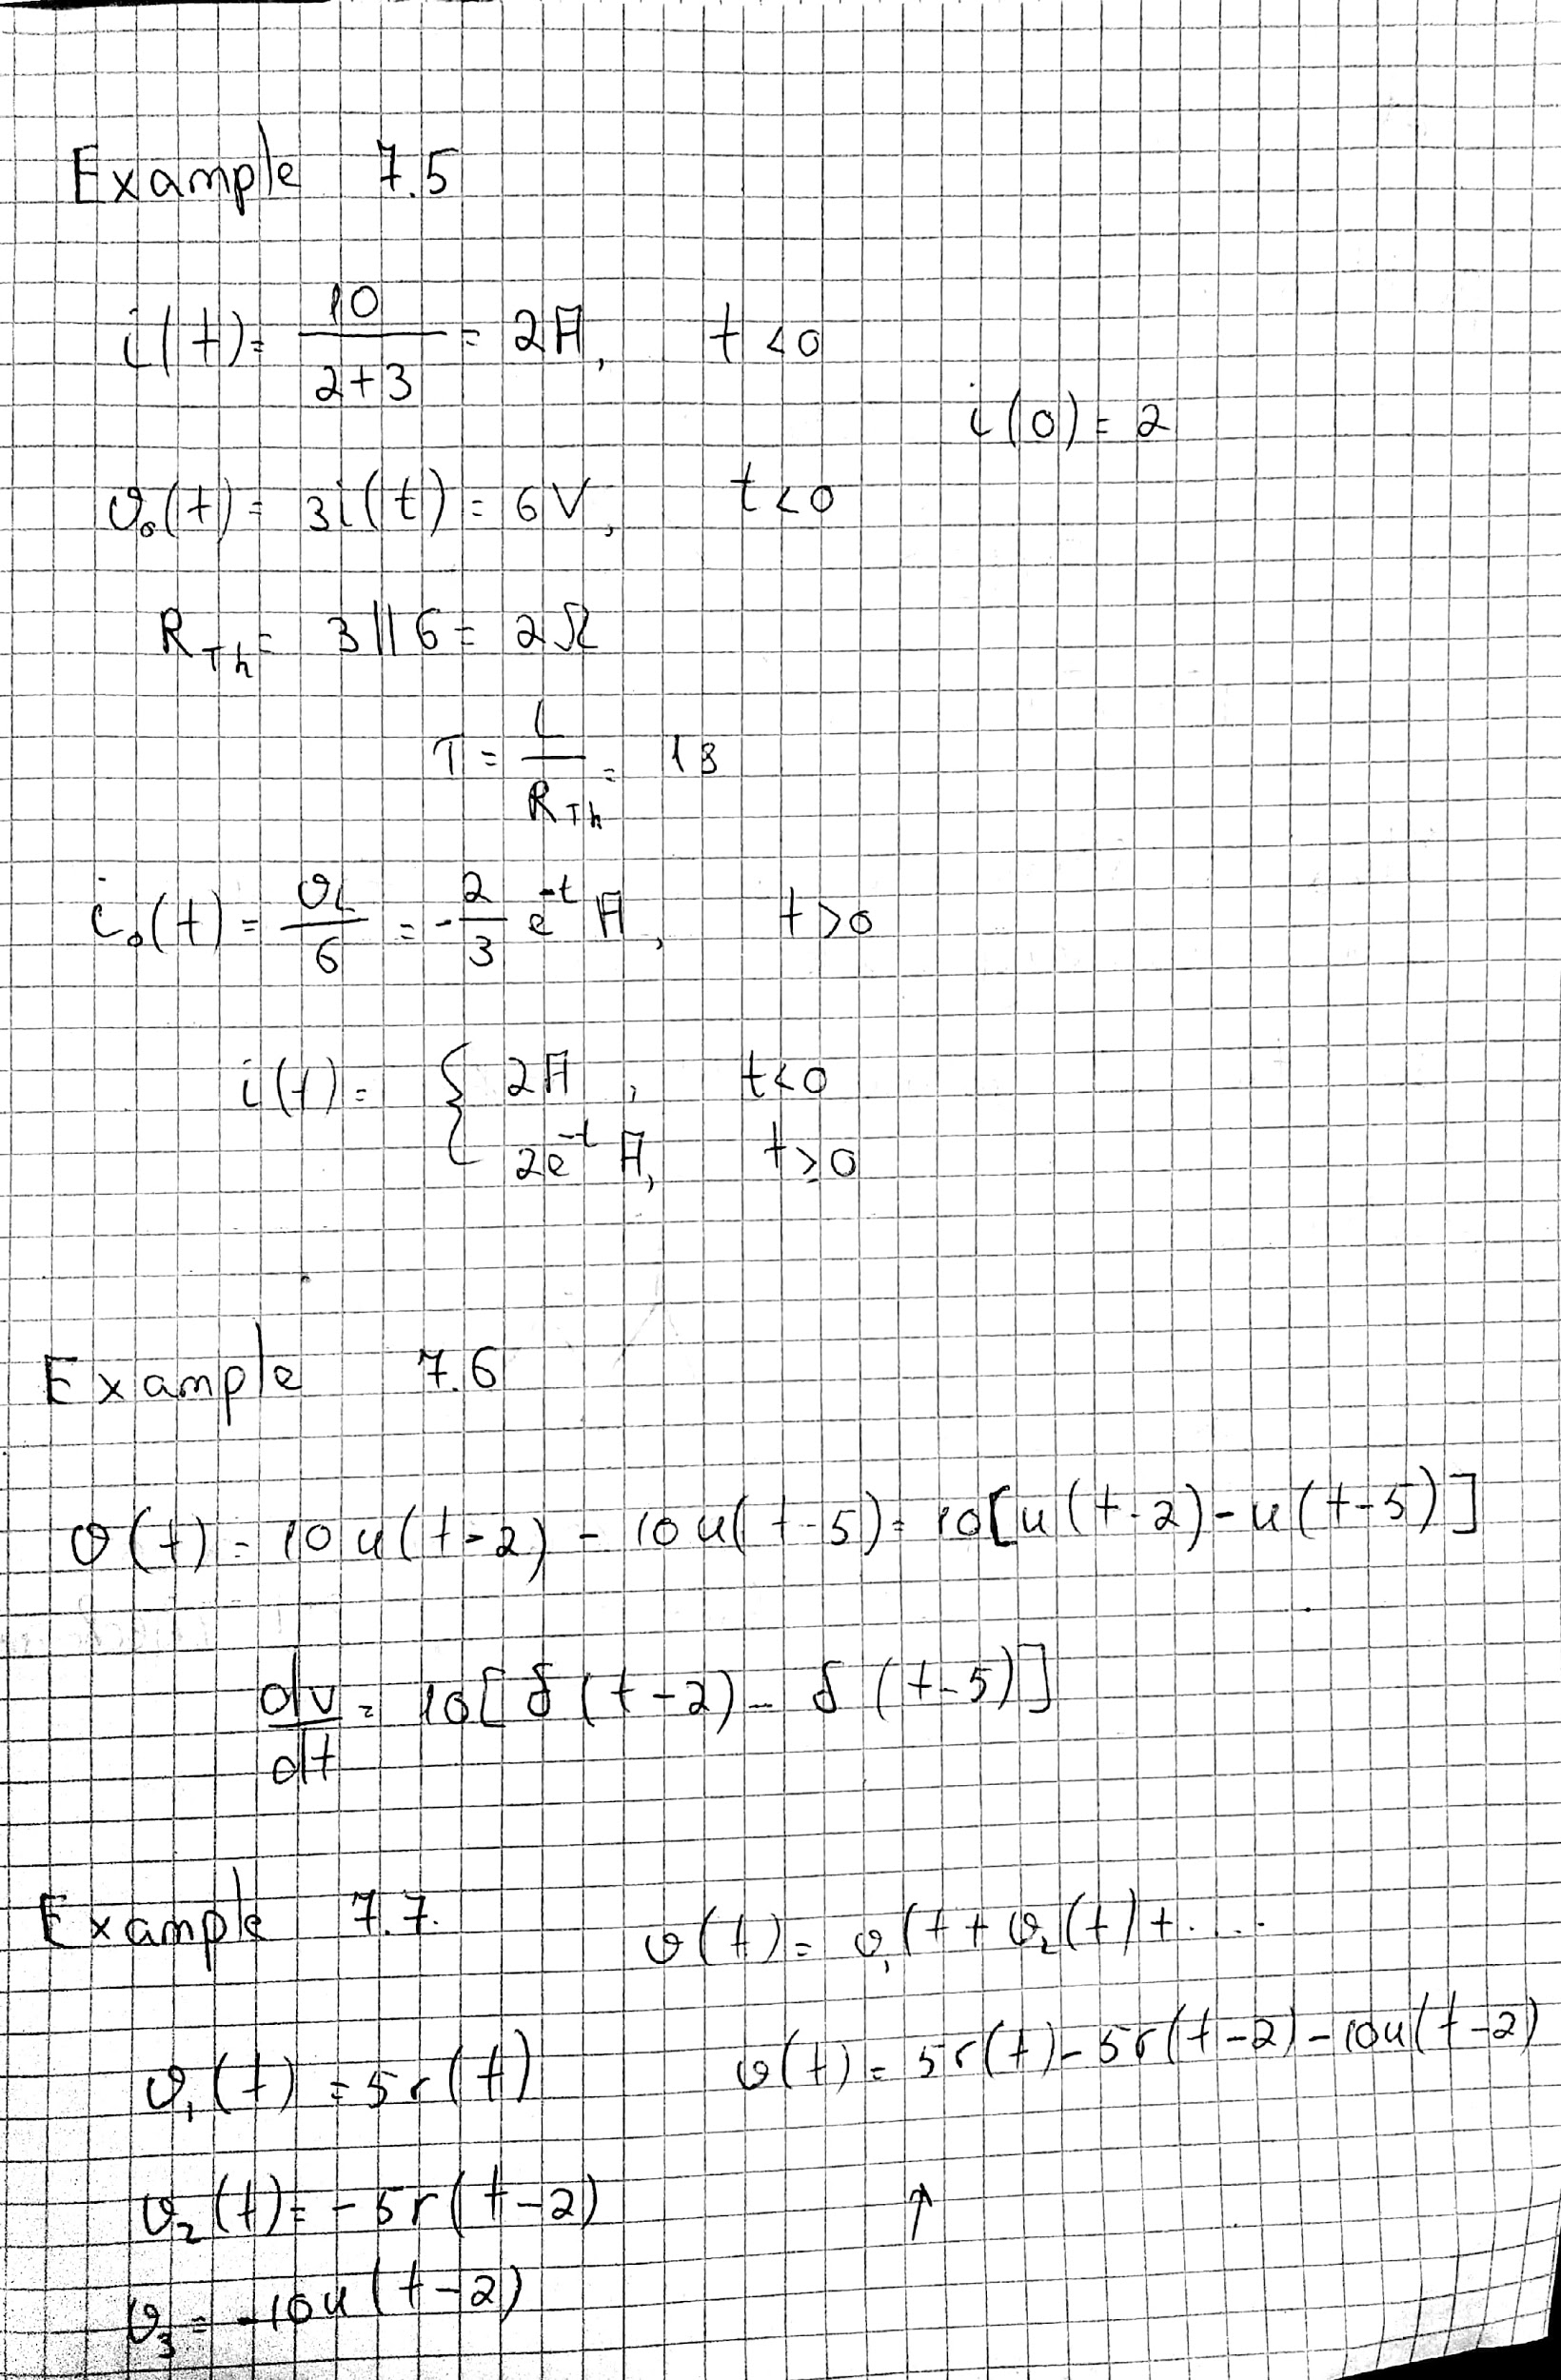 Example 7.5
i(t) = 10/(2+3) = 2A, t<0
i(0) = 2
v₀(t) = 3i(t) = 6V, t<0
R_Th = 3||6 = 2Ω
τ = L/R_Th = 1s
i₀(t) = v_L/6 = -2/3 e^-t A, t>0
i(t) = { 2A, t<0
2e^-t A, t≥0
Example 7.6
v(t) = 10u(t-2) - 10u(t-5) = 10[u(t-2) - u(t-5)]
dv/dt = 10[δ(t-2) - δ(t-5)]
Example 7.7.
v(t) = v₁(t + v₂(t) + ....
v₁(t) = 5r(t)
v(t) = 5r(t) - 5r(t-2) - 10u(t-2)
v₂(t) = -5r(t-2)
↑
v₃ = -10u(t-2)